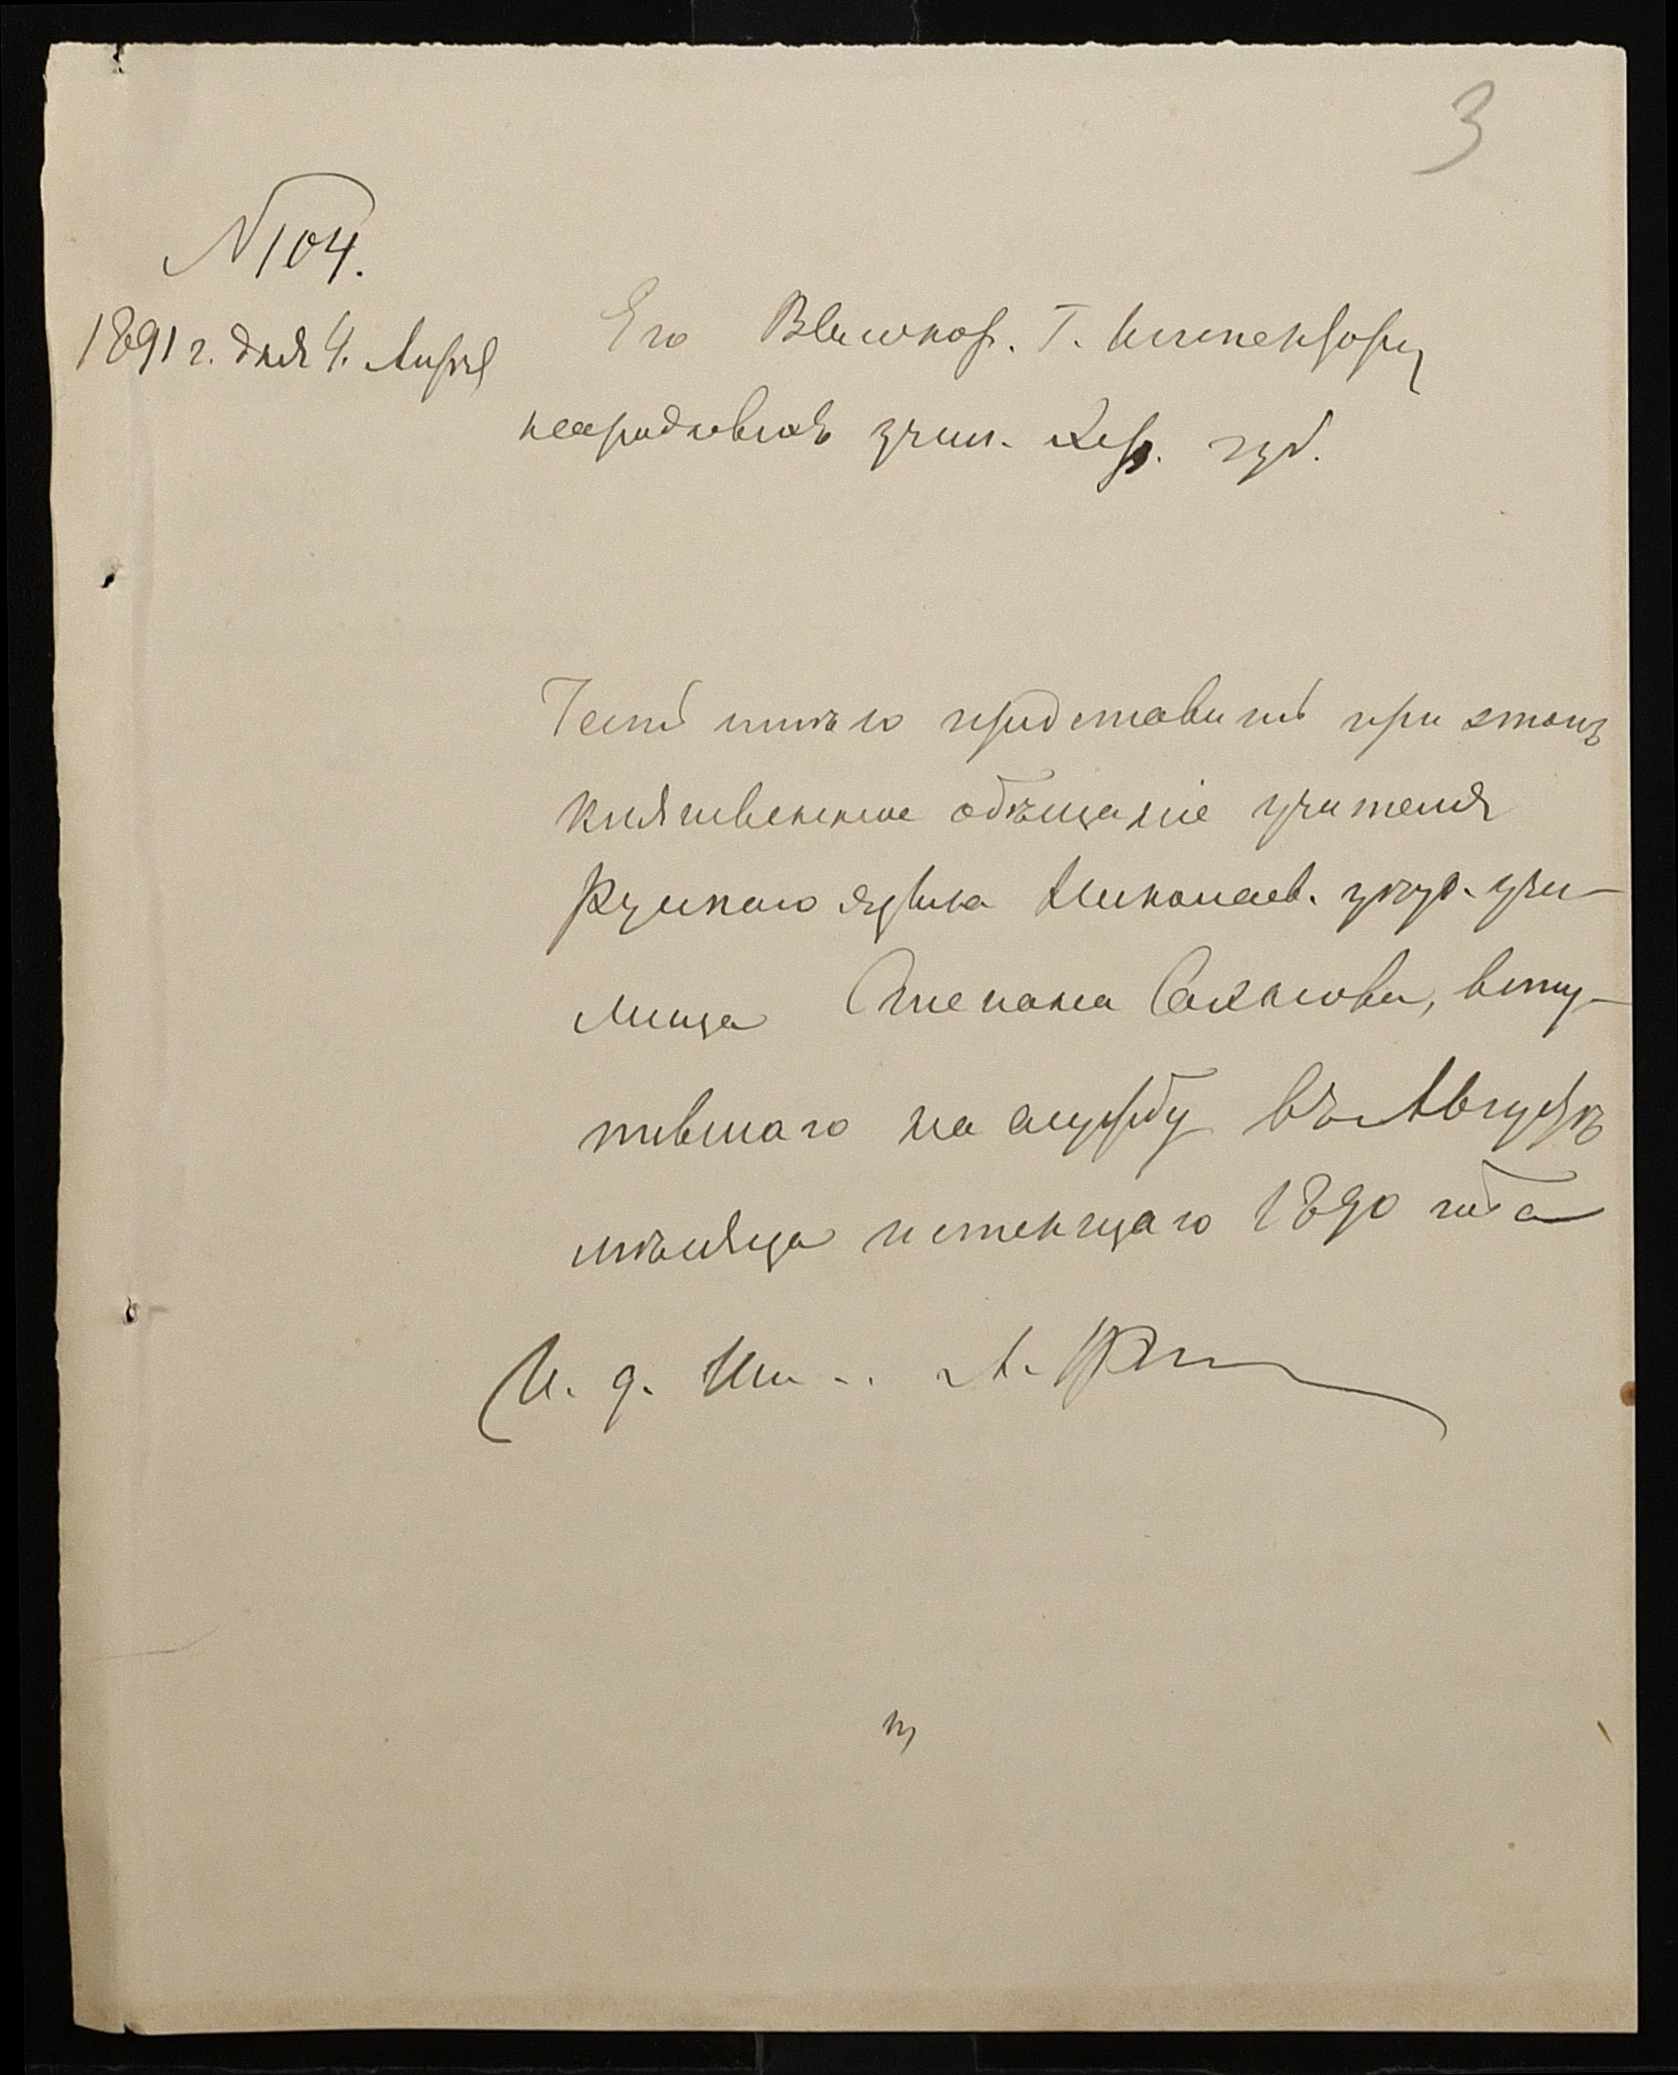 3
№ 104.
1891 г. дня 4. Апрѣл
Его Высокор. Г. Инспектору
народныхъ учил. Хер. губ.
Честь имѣю представить при этомъ
клятвенное обѣщаніе учителя
Русскаго языка Николаев. уѣзд. учи-
лища Степана, вступ-
ившаго на службу въ Августѣ
мѣсяца истекшаго 1890 года
И. д. А.